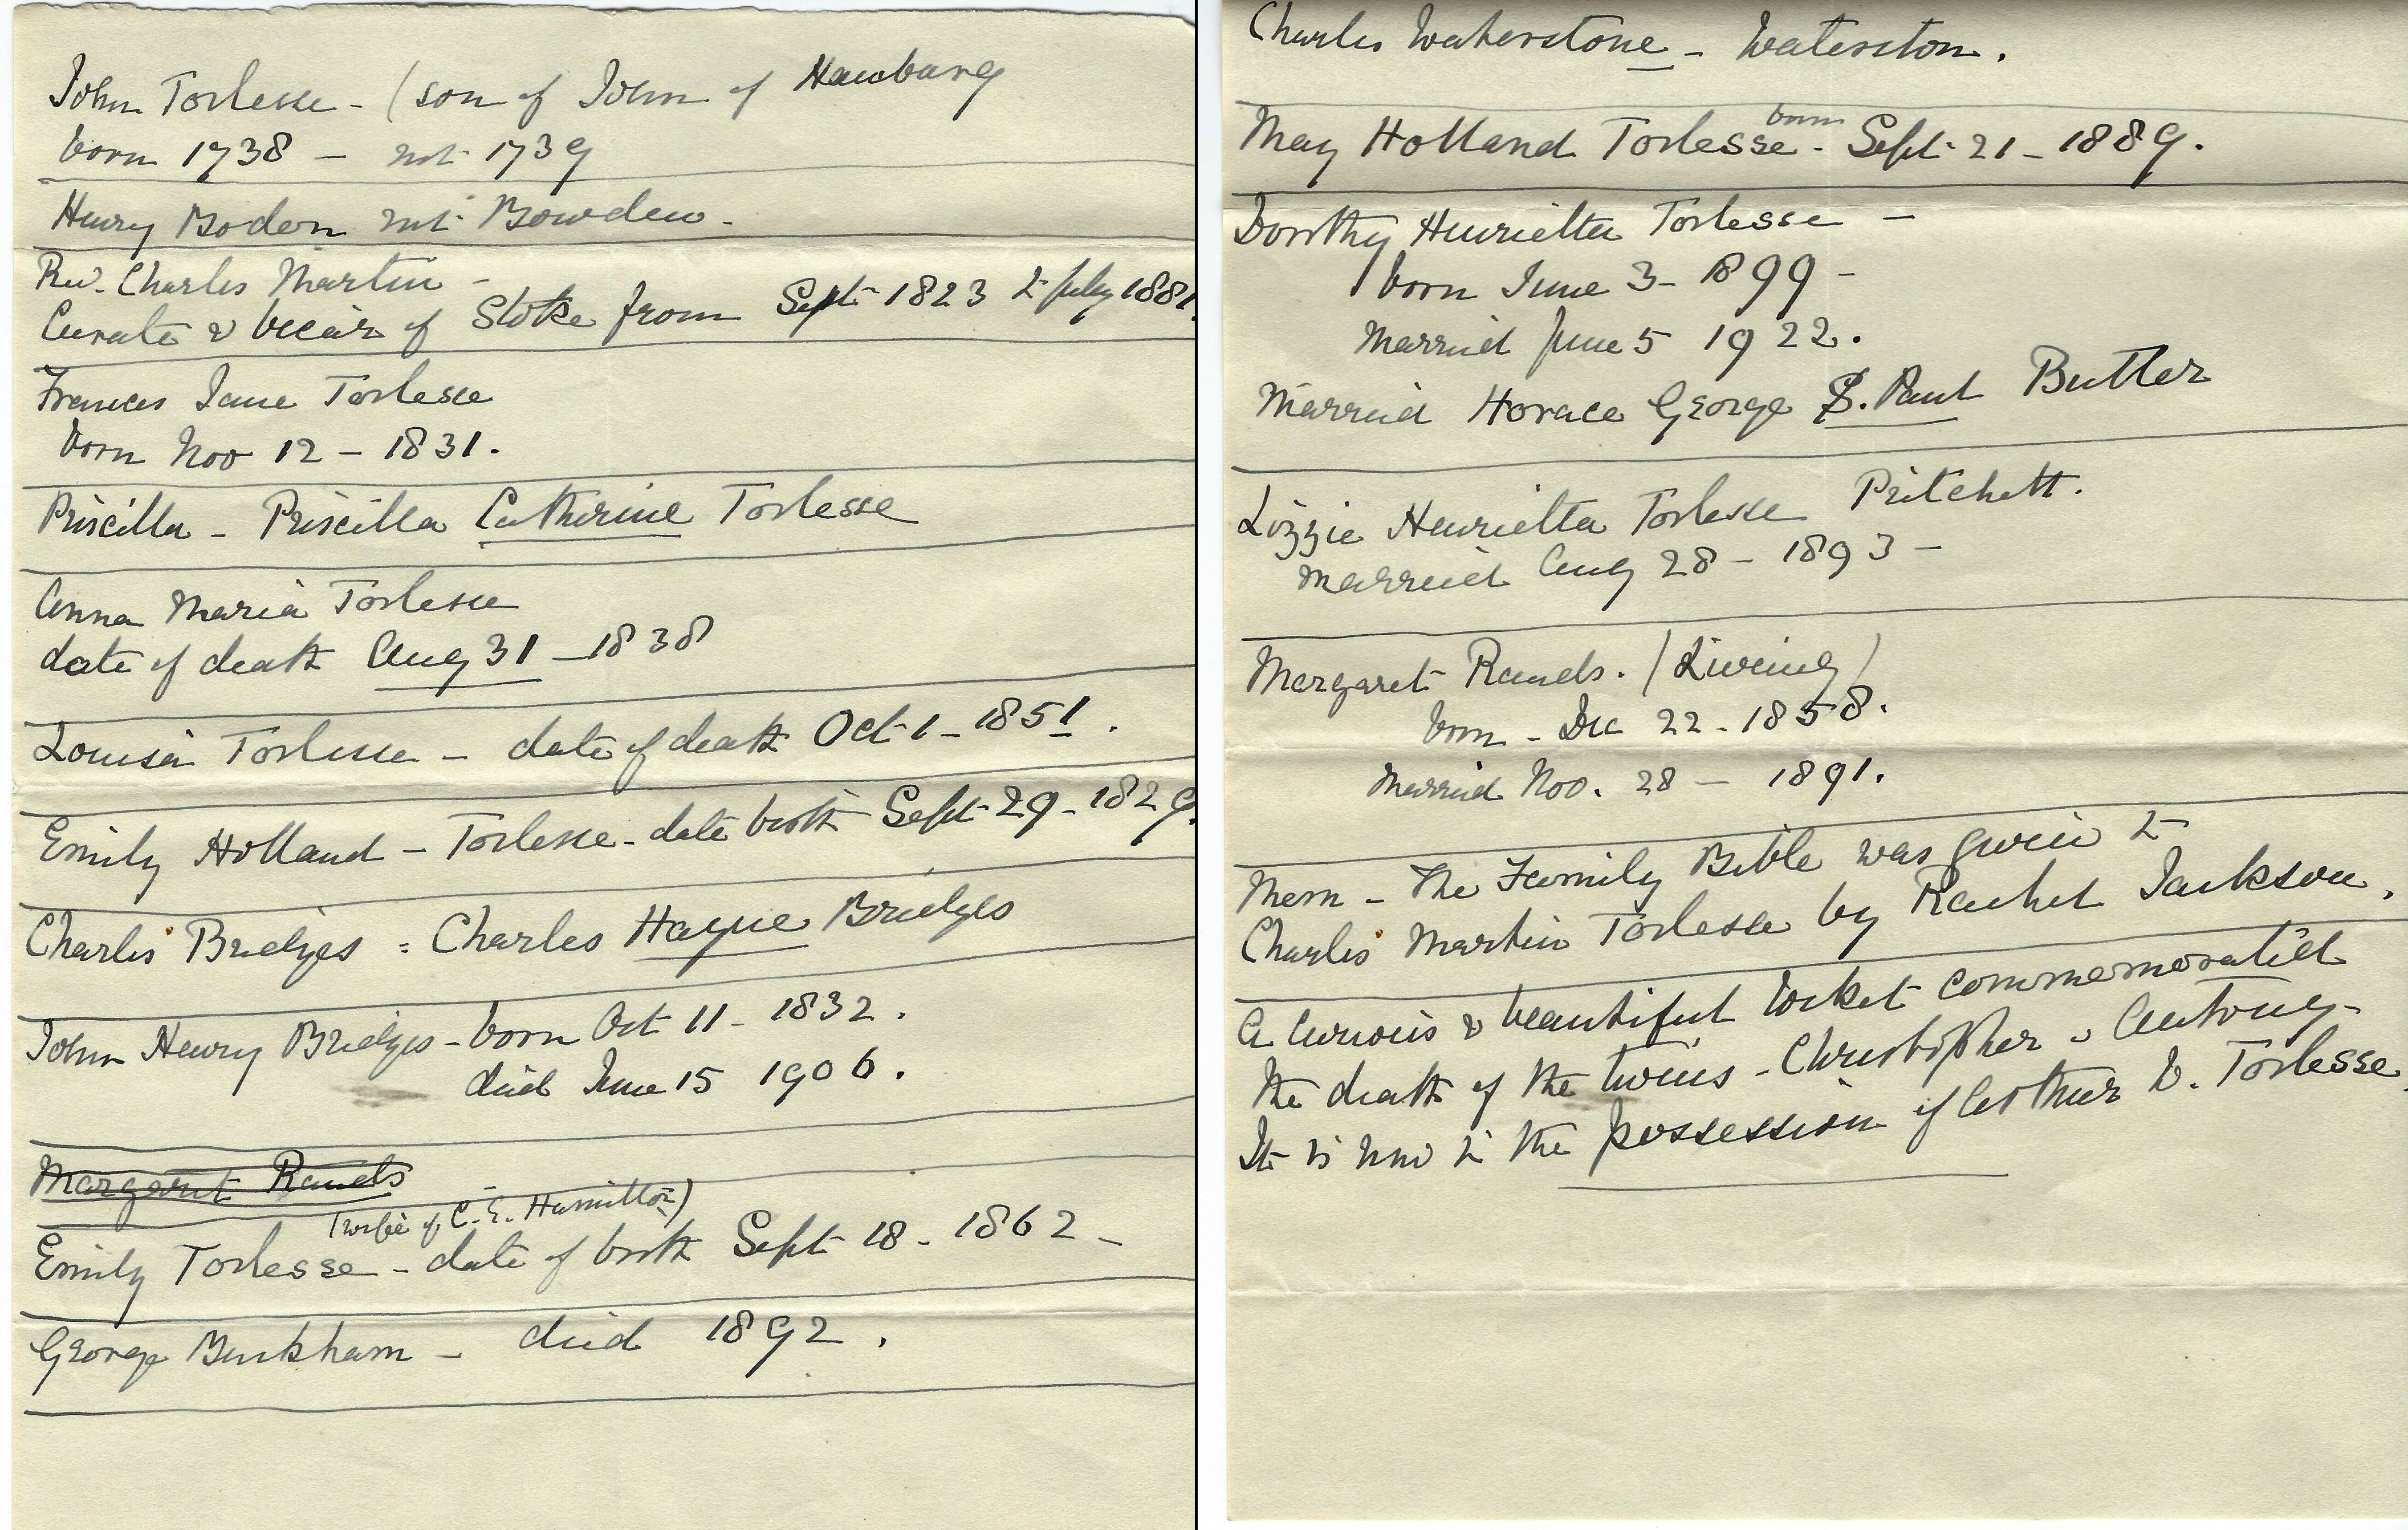 John Torlesse - (son of John of Hamburg
born 1738 - not 1739
Henry Boden not Bowden -
Rev. Charles Martin -
Curate & Vicar of Stoke from Sept 1823 to July 1881
Frances Jane Torlesse
born Nov 12 - 1831.
Priscilla - Priscilla Catherine Torlesse
Anna Maria Torlesse
date of death Aug 31 - 1838
Louisa Torlesse - date of death Oct 1 - 1851.
Emily Holland - Torlesse - date birth Sept 29 - 1829.
Charles Bridges = Charles Hayne Bridges
John Henry Bridges - born Oct 11 - 1832.
died June 15 1906.
Margaret Rands
(wife of C. E. Hamilton)
Emily Torlesse - date of birth Sept 18 - 1862 -
George Buckham - died 1892.
Charles Waterstone - Waterston.
born
May Holland Torlesse - Sept 21 - 1889.
Dorothy Henrietta Torlesse -
born June 3 - 1899 -
Married June 5 1922.
Married Horace George S. Paul Butler
Lizzie Henrietta Torlesse Pritchett.
Married Aug 28 - 1893 -
Margaret Rands. (Liveing)
born - Dec 22 - 1858.
Married Nov. 28 - 1891.
Mem - The Family Bible was given to
Charles Martin Torlesse by Rachel Jackson.
A curious & beautiful locket commemorated
the death of the twins - Christopher & Antony -
It is now in the possession of Arthur W. Torlesse